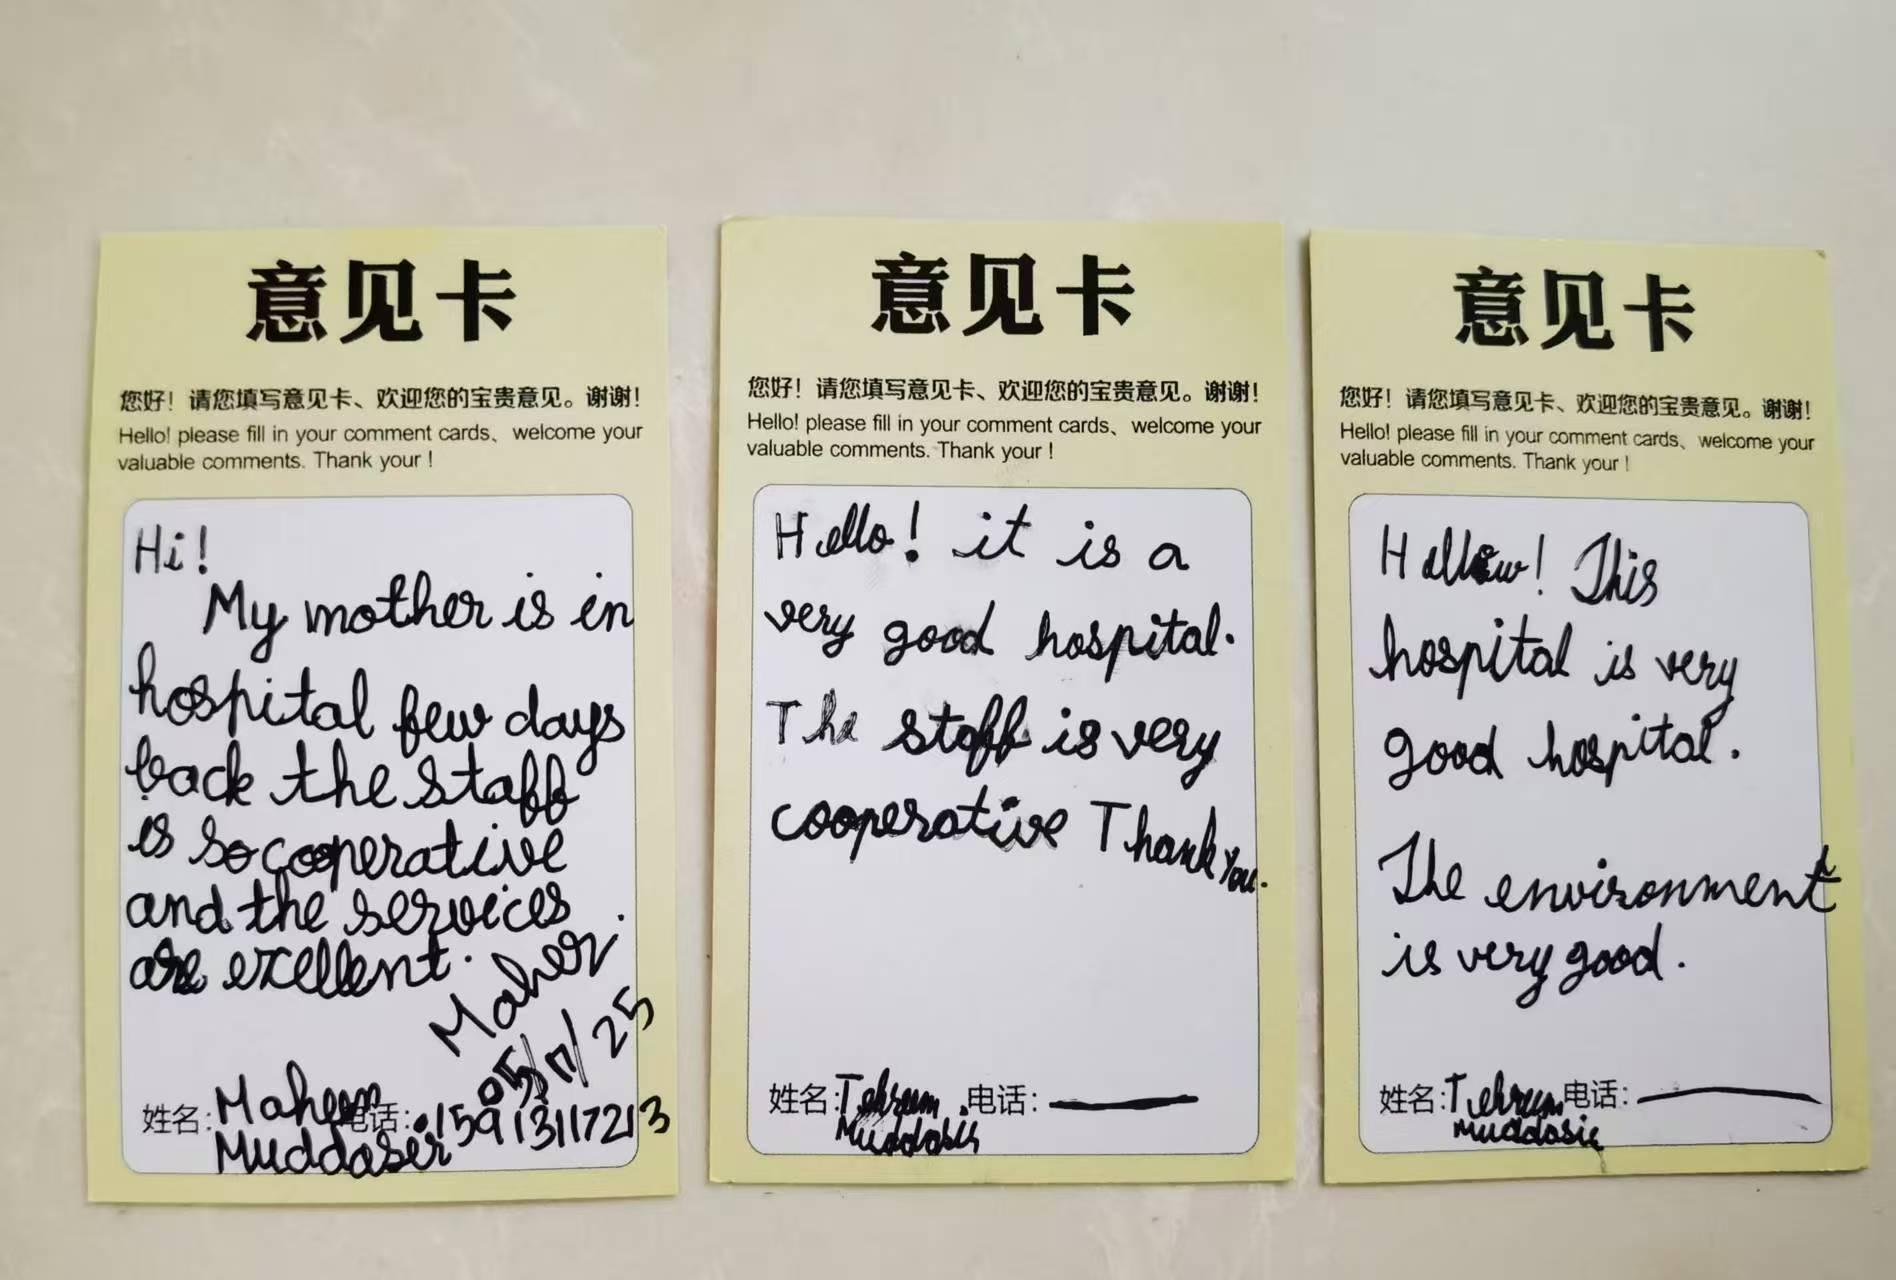 意见卡
您好！请您填写意见卡、欢迎您的宝贵意见。谢谢！
Hello! please fill in your comment cards、welcome your
valuable comments. Thank your !
Hi!
My mother is in
hospital few days
back the staff
is so cooperative
and the services
are excellent.
Maher.
05/11/25
姓名: Mahem 电话: 15913117213
Muddaser
意见卡
您好！请您填写意见卡、欢迎您的宝贵意见。谢谢！
Hello! please fill in your comment cards、welcome your
valuable comments. Thank your !
Hello! it is a
very good hospital.
The staff is very
cooperative Thank You.
姓名: Tehrum 电话:
Muddasir
意见卡
您好！请您填写意见卡、欢迎您的宝贵意见。谢谢！
Hello! please fill in your comment cards、welcome your
valuable comments. Thank your !
Hellow! This
hospital is very
good hospital.
The environment
is very good.
姓名: Tehrum 电话:
Muddasir